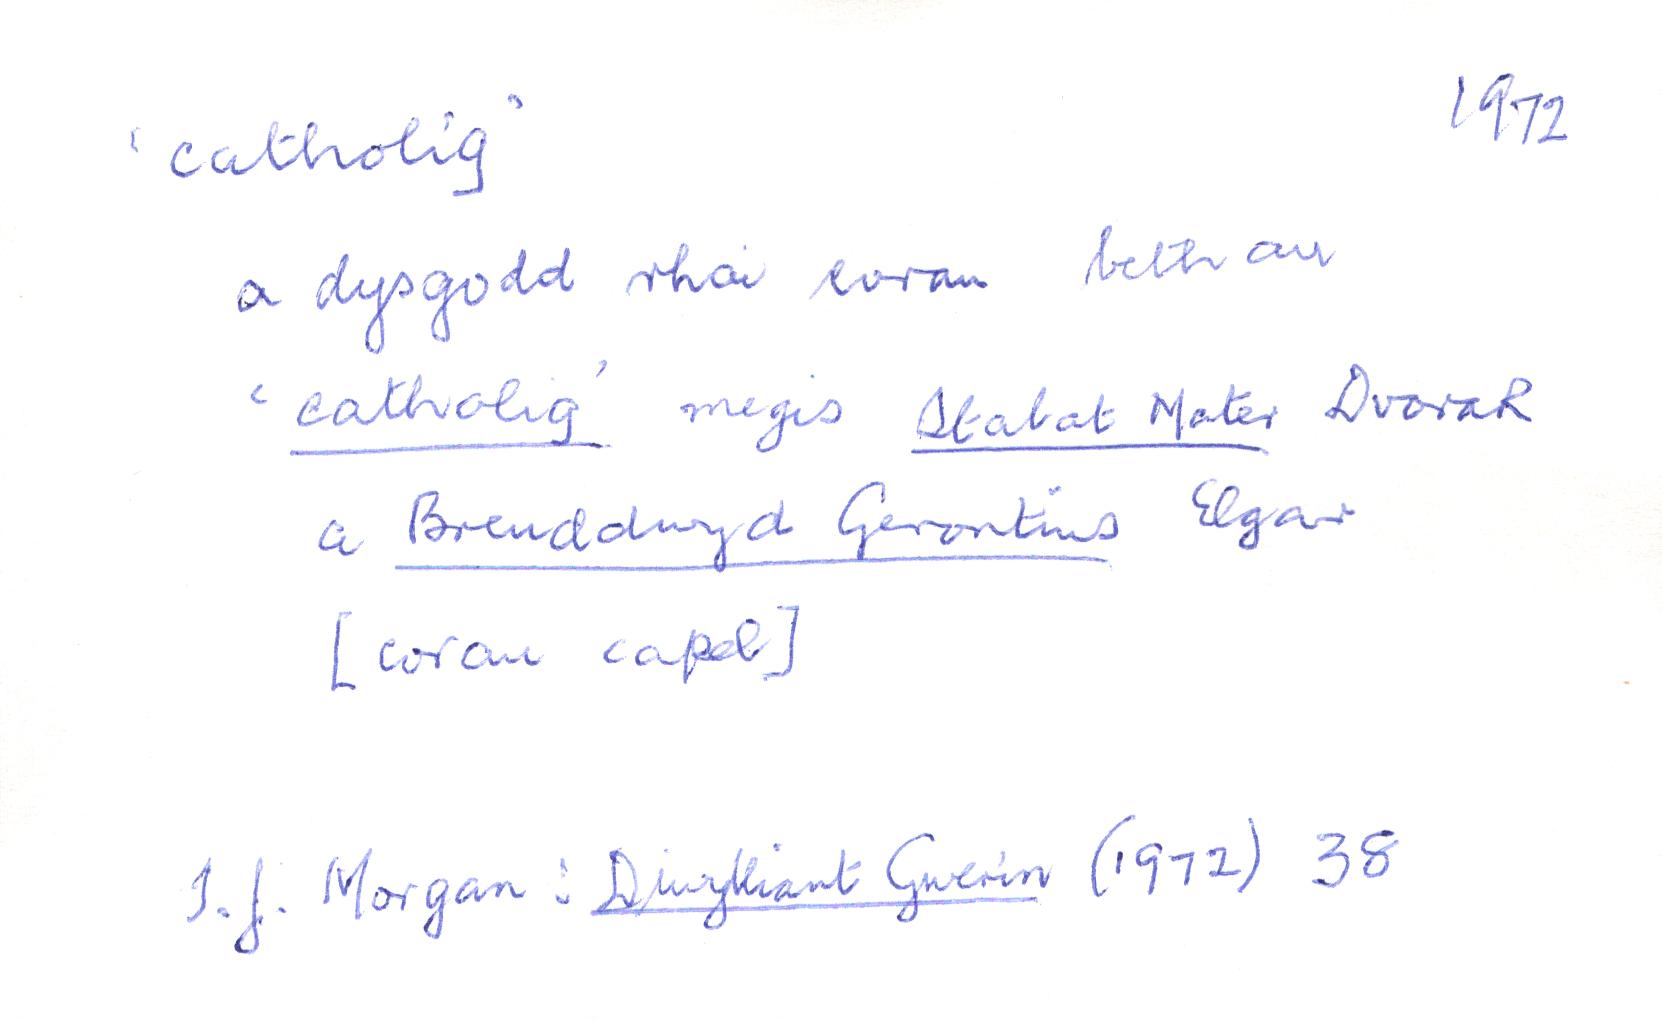 'catholig' 1972
a dysgodd rhai corau bethau
'catholig' megis Stabat Mater Dvorak
a Breuddwyd Gerontius Elgar
[corau capel]
T.J. Morgan : Diwylliant Gwerin (1972) 38